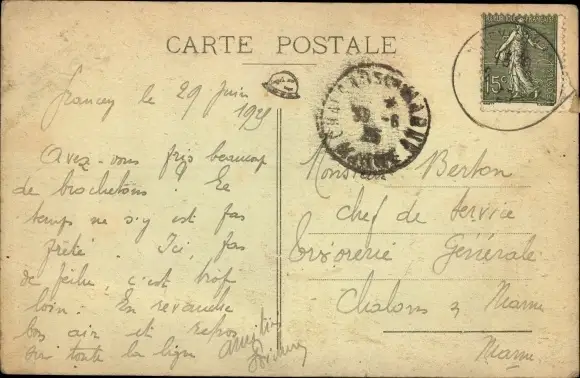 CARTE POSTALE
le 29 Juin
Avez-vous pris beaucoup
de brochetons. Le
temps ne s'y est pas
prêté. Ici, pas
de pêche, c'est trop
loin. En revanche
bon air et repos
sur toute la ligne
Monsieur Berton
chef de service
Trésorerie Générale
Chalons s/ Marne
Marne
15c